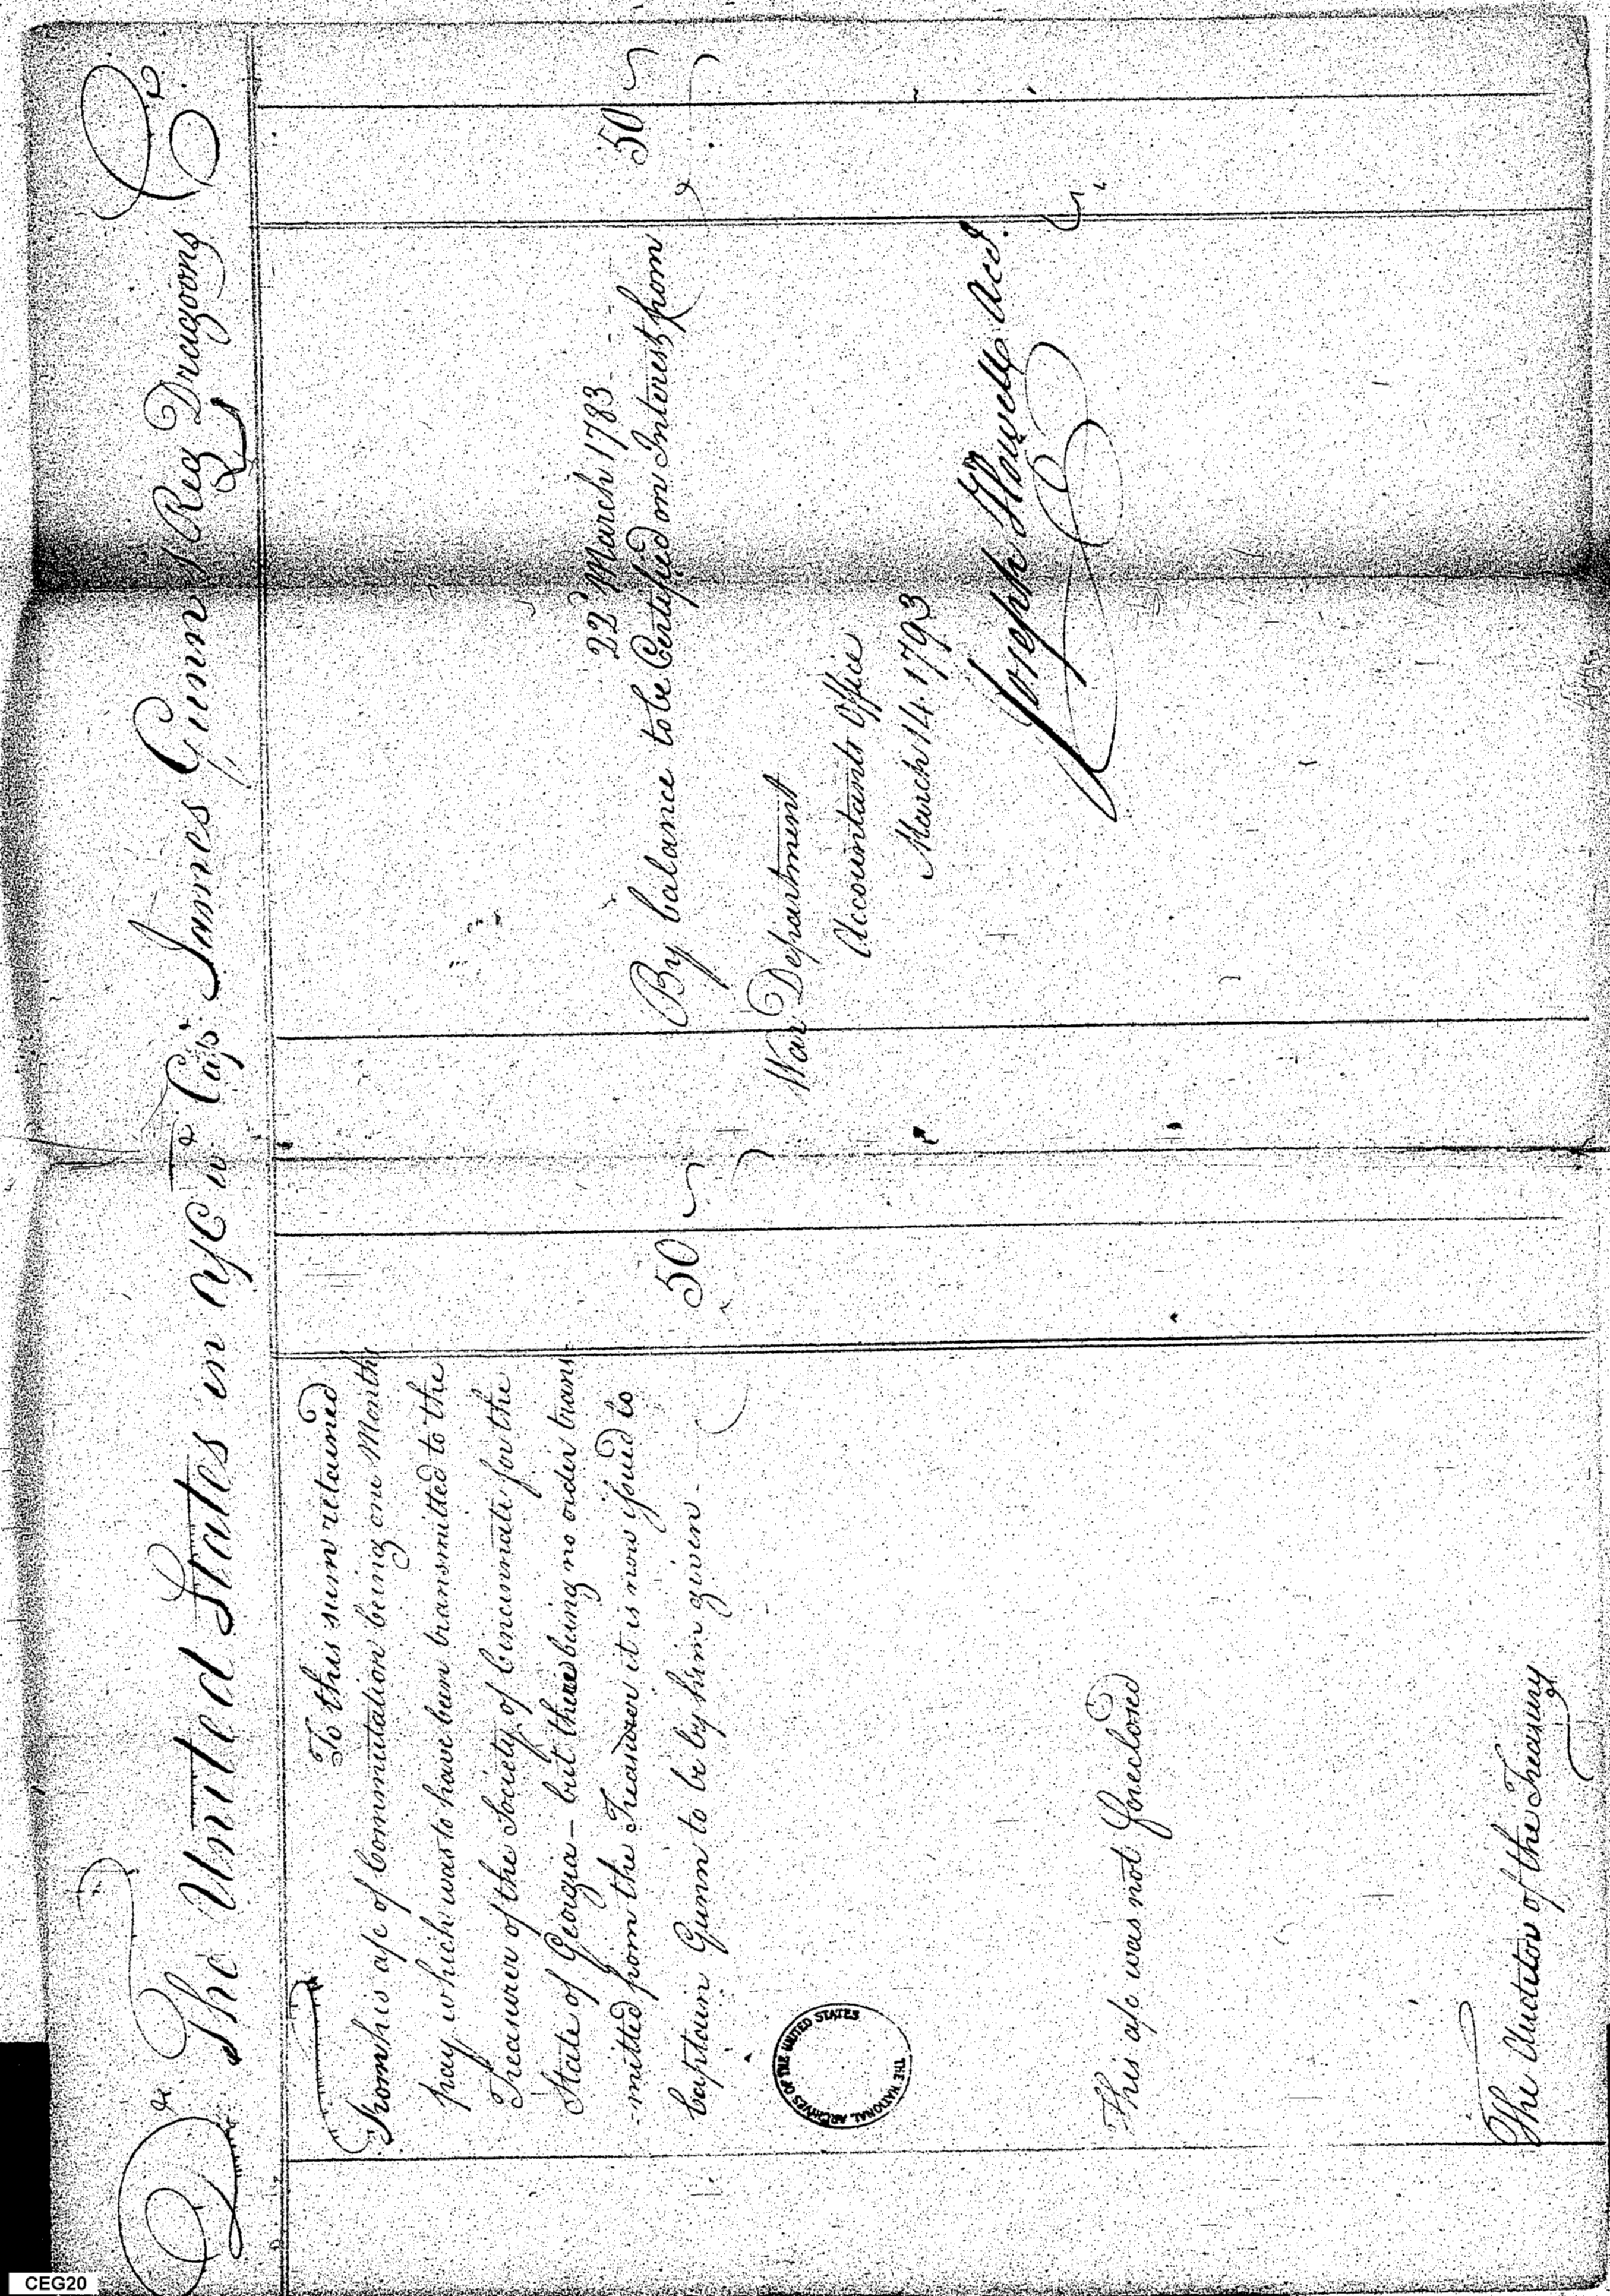 Dr. The United States in a/c wt. Capt. James Gunn Reg Dragoons Cr.
To this sum retained
from his a/c of Commutation being one Months
pay which was to have been transmitted to the
Treasurer of the Society of Cincinnati for the
State of Georgia - but there being no order trans
-mitted from the Treasurer it is now issued to
Captain Gunn to be by him given -
50
This a/c was not foreclosed
The Auditor of the Treasury
By balance to be Certified on Interest from
22d March 1783 - - -
50
War Department
Accountants Office
March 14. 1793
Joseph Howell Acct.
THE NATIONAL ARCHIVES OF THE UNITED STATES
CEG20